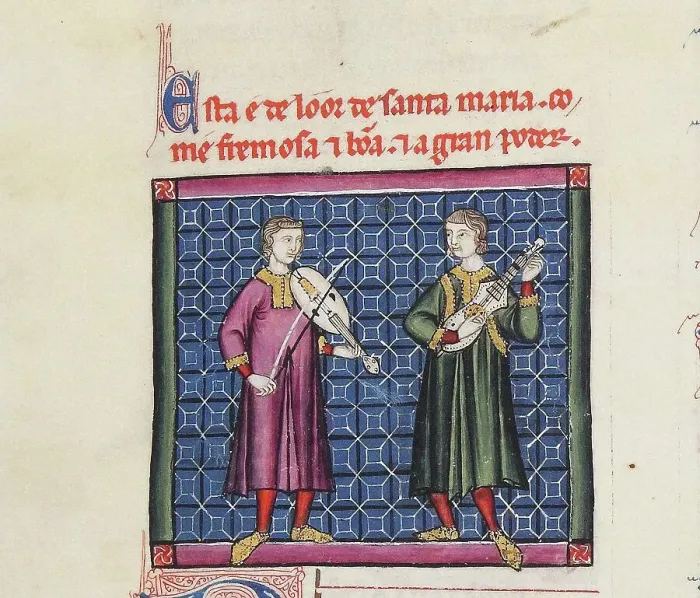 Esta e de loor de santa maria . co/
me fremosa ⁊ bõa . ⁊ a gran poder .